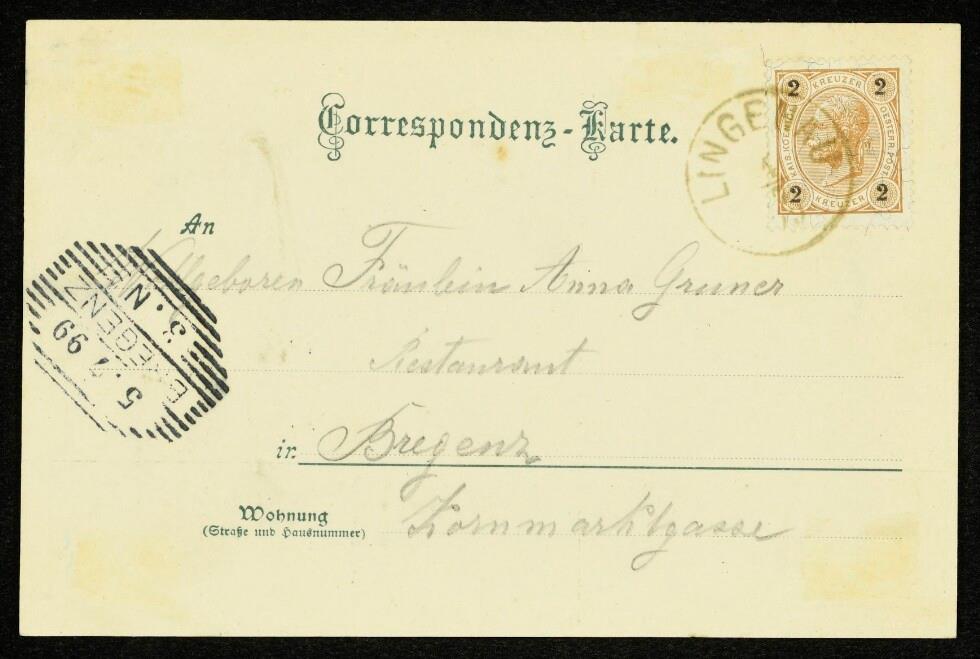 Correspondenz-Karte.
2 KREUZER 2
KAIS. KOENIGL. OESTERR. POST
2 KREUZER 2
LINGENAU
An
Wollgeboren Fräulein Anna Gruner
Restaurant
in Bregenz
Wohnung
(Straße und Hausnummer)
Kornmarktgasse
BREGENZ
5. 99
3. N